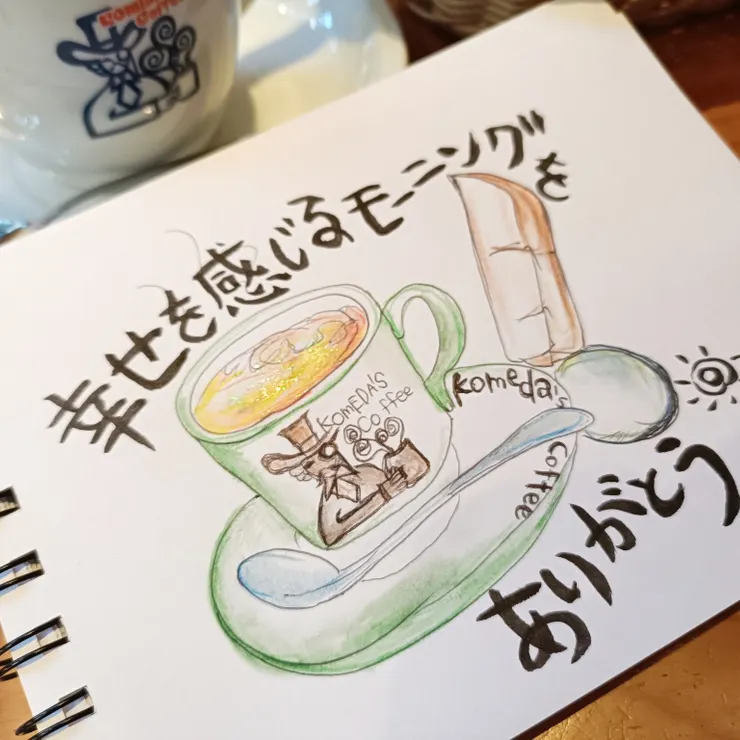 Komeda's
Coffee
幸せを感じるモーニングを
KOMEDA'S
Coffee
Komeda's
Coffee
ありがとう